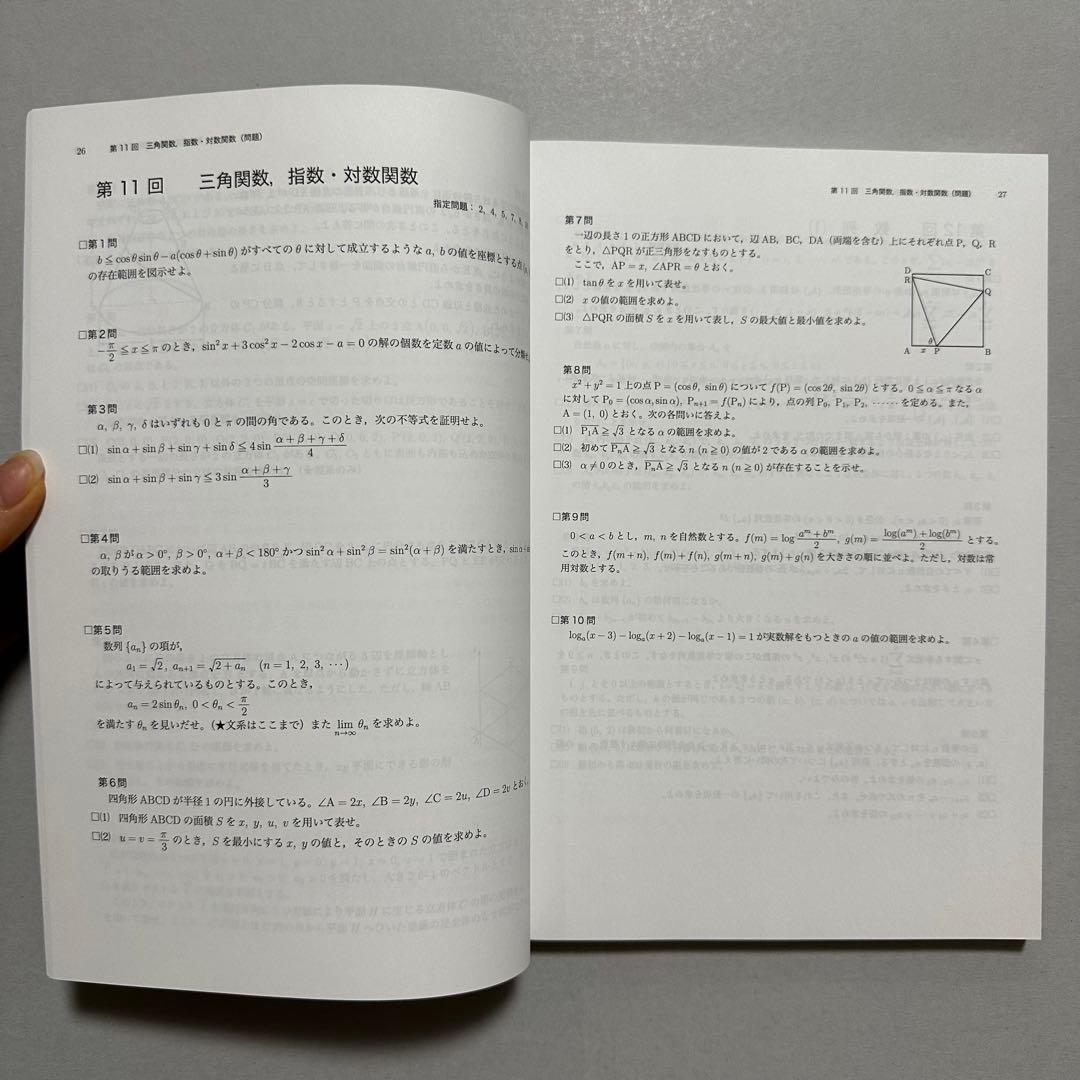 26 第11回 三角関数,指数・対数関数(問題)
第11回 三角関数,指数・対数関数
指定問題:2, 4, 5, 7, 8,
□第1問
b≦cosθsinθ−a(cosθ+sinθ)がすべてのθに対して成立するようなa, bの値を座標とする点
の存在範囲を図示せよ。
□第2問
−π/2≦x≦πのとき,sin²x+3cos²x−2cosx−a=0の解の個数を定数aの値によって分類
第3問
α, β, γ, δはいずれも0とπの間の角である。このとき,次の不等式を証明せよ。
□(1) sinα+sinβ+sinγ+sinδ≦4sin (α+β+γ+δ)/4
□(2) sinα+sinβ+sinγ≦3sin (α+β+γ)/3
□第4問
α, βがα>0°, β>0°, α+β<180°かつsin²α+sin²β=sin²(α+β)を満たすとき,
の取りうる範囲を求めよ。
□第5問
数列{aₙ}の項が,
a₁=√2, aₙ₊₁=√(2+aₙ) (n=1, 2, 3, ⋯)
によって与えられているものとする。このとき,
aₙ=2sinθₙ, 0<θₙ<π/2
を満たすθₙを見いだせ。(★文系はここまで)また lim n→∞ θₙを求めよ。
第6問
四角形ABCDが半径1の円に外接している。∠A=2x, ∠B=2y, ∠C=2u, ∠D=2vとおく。
□(1) 四角形ABCDの面積Sをx, y, u, vを用いて表せ。
□(2) u=v=π/3のとき,Sを最小にするx, yの値と,そのときのSの値を求めよ。
第11回 三角関数,指数・対数関数(問題) 27
第7問
一辺の長さ1の正方形ABCDにおいて,辺AB, BC, DA(両端を含む)上にそれぞれ点P, Q, R
をとり,△PQRが正三角形をなすものとする。
ここで,AP=x, ∠APR=θとおく。
□(1) tanθをxを用いて表せ。
□(2) xの値の範囲を求めよ。
□(3) △PQRの面積Sをxを用いて表し,Sの最大値と最小値を求めよ。
D C
R
Q
θ
A x P B
第8問
x²+y²=1上の点P=(cosθ, sinθ)についてf(P)=(cos2θ, sin2θ)とする。0≦α≦πなるα
に対してP₀=(cosα, sinα), Pₙ₊₁=f(Pₙ)により,点の列P₀, P₁, P₂, ⋯⋯を定める。また,
A=(1, 0)とおく。次の各問いに答えよ。
□(1) P₁A≧√3となるαの範囲を求めよ。
□(2) 初めてPₙA≧√3となるn(n≧0)の値が2であるαの範囲を求めよ。
□(3) α≠0のとき,PₙA≧√3となるn(n≧0)が存在することを示せ。
□第9問
0<a<bとし,m, nを自然数とする。f(m)=log (aᵐ+bᵐ)/2, g(m)=(log(aᵐ)+log(bᵐ))/2 とする。
このとき,f(m+n), f(m)+f(n), g(m+n), g(m)+g(n)を大きさの順に並べよ。ただし,対数は常
用対数とする。
□第10問
logₐ(x−3)−logₐ(x+2)−logₐ(x−1)=1が実数解をもつときのaの値の範囲を求めよ。